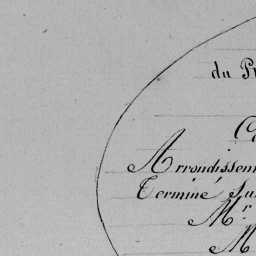 du P
C
Arrondissem
Terminé, su
Mr.
M